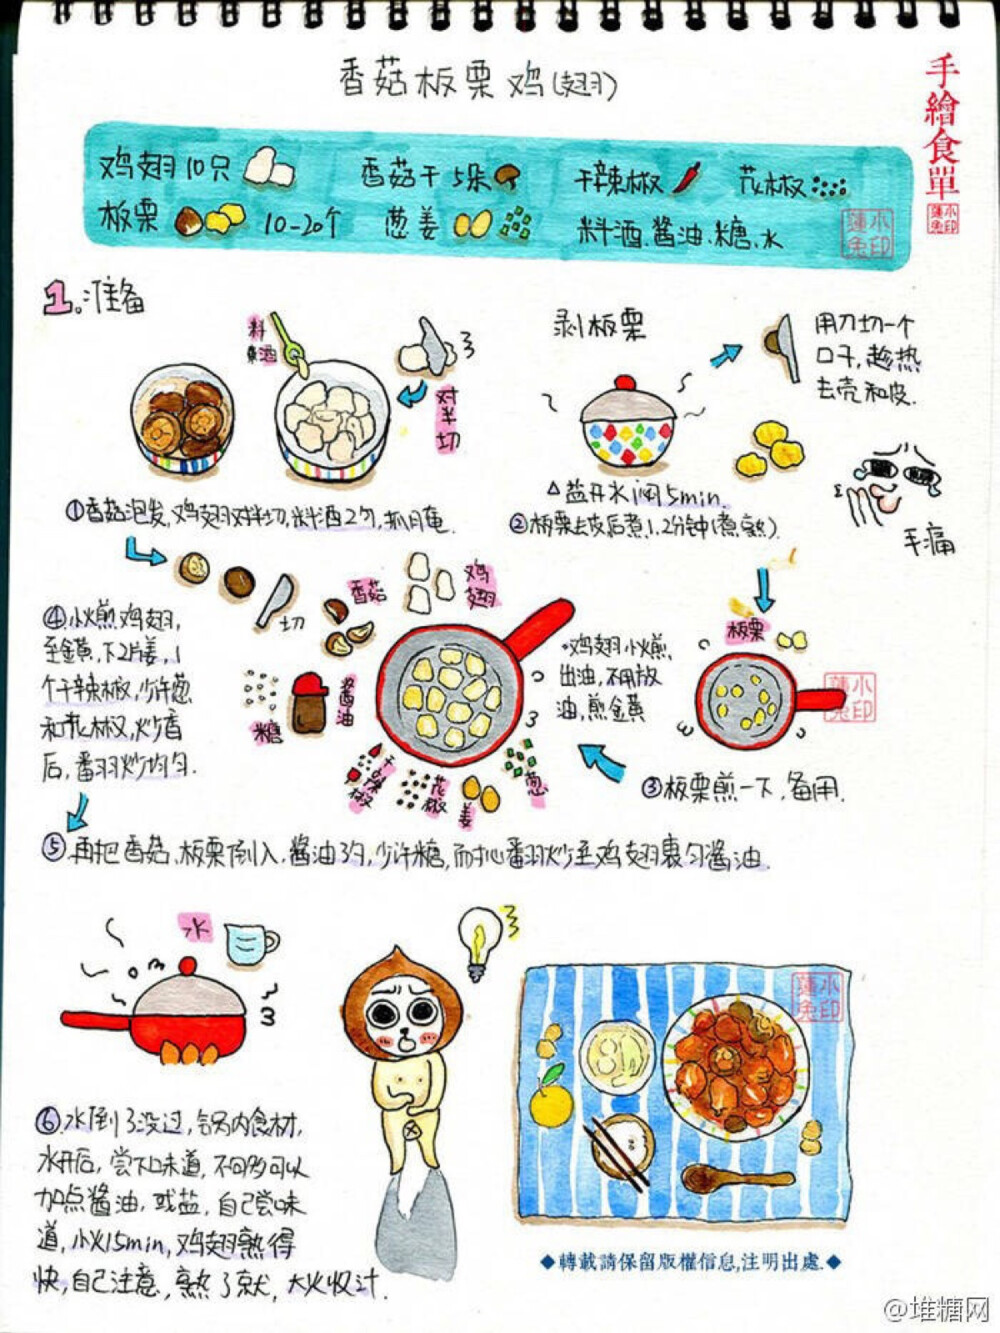 香菇板栗鸡(翅)
手繪食單
蓮兔小印
鸡翅10只
香菇干5朵
干辣椒
花椒
板栗
10-20个
葱姜
料酒.酱油.糖.水
蓮兔小印
1.准备
料酒
对半切
剥板栗
用刀切一个
口子,趁热
去壳和皮.
△盐开水闷5min.
①香菇泡发,鸡翅对半切,料酒2勺,抓腌.
②板栗去皮后煮1.2分钟(煮熟)
手痛
切
香菇
鸡翅
板栗
④小火煎鸡翅,
至金黄,下2片姜,1
个干辣椒,少许葱
和花椒,炒香
后,番羽炒均匀.
糖
酱油
干辣椒
花椒
姜
葱
·鸡翅小火煎,
出油,不用放
油,煎金黄
蓮兔小印
③板栗煎一下,备用.
⑤再把香菇.板栗倒入,酱油3勺,少许糖,而后番羽炒至鸡翅裹匀酱油.
水
⑥.水倒了没过,锅内食材,
水开后,尝下味道,不够可以
加点酱油,或盐,自己尝味
道,小火15min,鸡翅熟得
快,自己注意,熟了就,大火收汁.
蓮兔小印
◆轉載請保留版權信息,注明出處.◆
@堆糖网